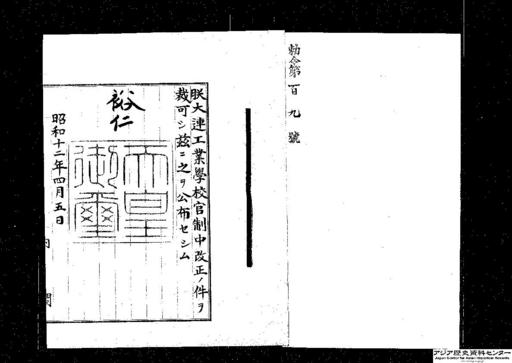 勅令第百九號
朕大連工業學校官制中改正ノ件ヲ
裁可シ玆ニ之ヲ公布セシム
裕仁
天皇御璽
昭和十二年四月五日
内閣
アジア歴史資料センター
Japan Center for Asian Historical Records